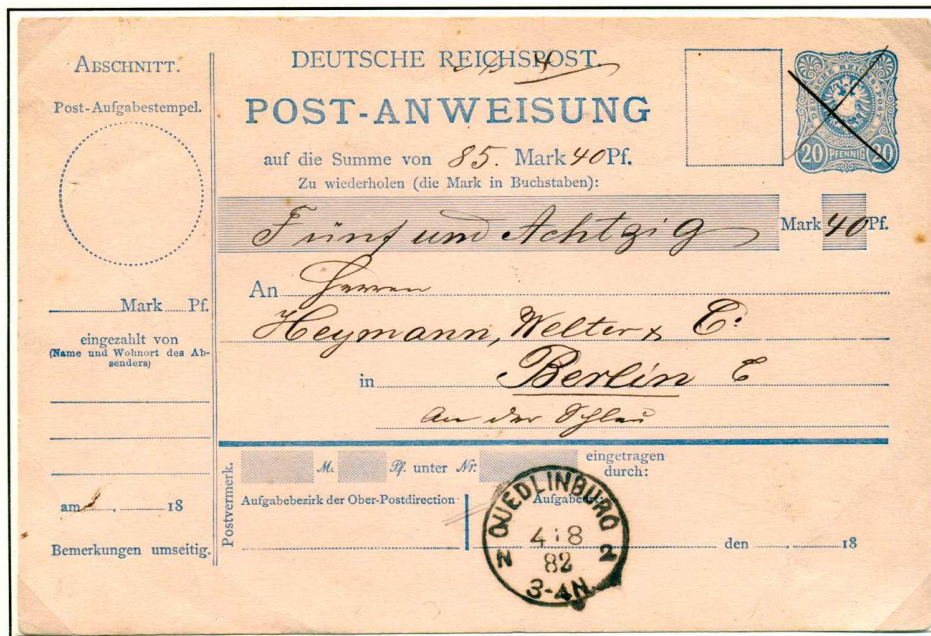 ABSCHNITT.
Post-Aufgabestempel.
Mark Pf.
eingezahlt von
(Name und Wohnort des Ab-
senders)
am 18
Bemerkungen umseitig.
DEUTSCHE REICHSPOST.
POST-ANWEISUNG
auf die Summe von 85. Mark 40 Pf.
Zu wiederholen (die Mark in Buchstaben):
Fünf und Achtzig Mark 40 Pf.
An Herren
Heymann, Welter & C:
in Berlin C
An der
20 PFENNIG 20
Postvermerk.
M. Pf. unter Nr. eingetragen
durch:
Aufgabebezirk der Ober-Postdirection
den 18
QUEDLINBURG
4 8
82
3-4N.
2 2